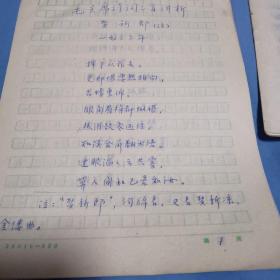 毛主席诗词六首讲析
贺新郎（读）
一九二三年
挥手从兹去。
更那堪凄然相向，
苦情重诉。
眼角眉梢都似恨，
热泪欲零还住。
知误会前番书语。
过眼滔滔云共雾，
算人间知己吾和汝。
注：“贺新郎”，词牌名，又名贺新凉、
金缕曲。
第 1 页